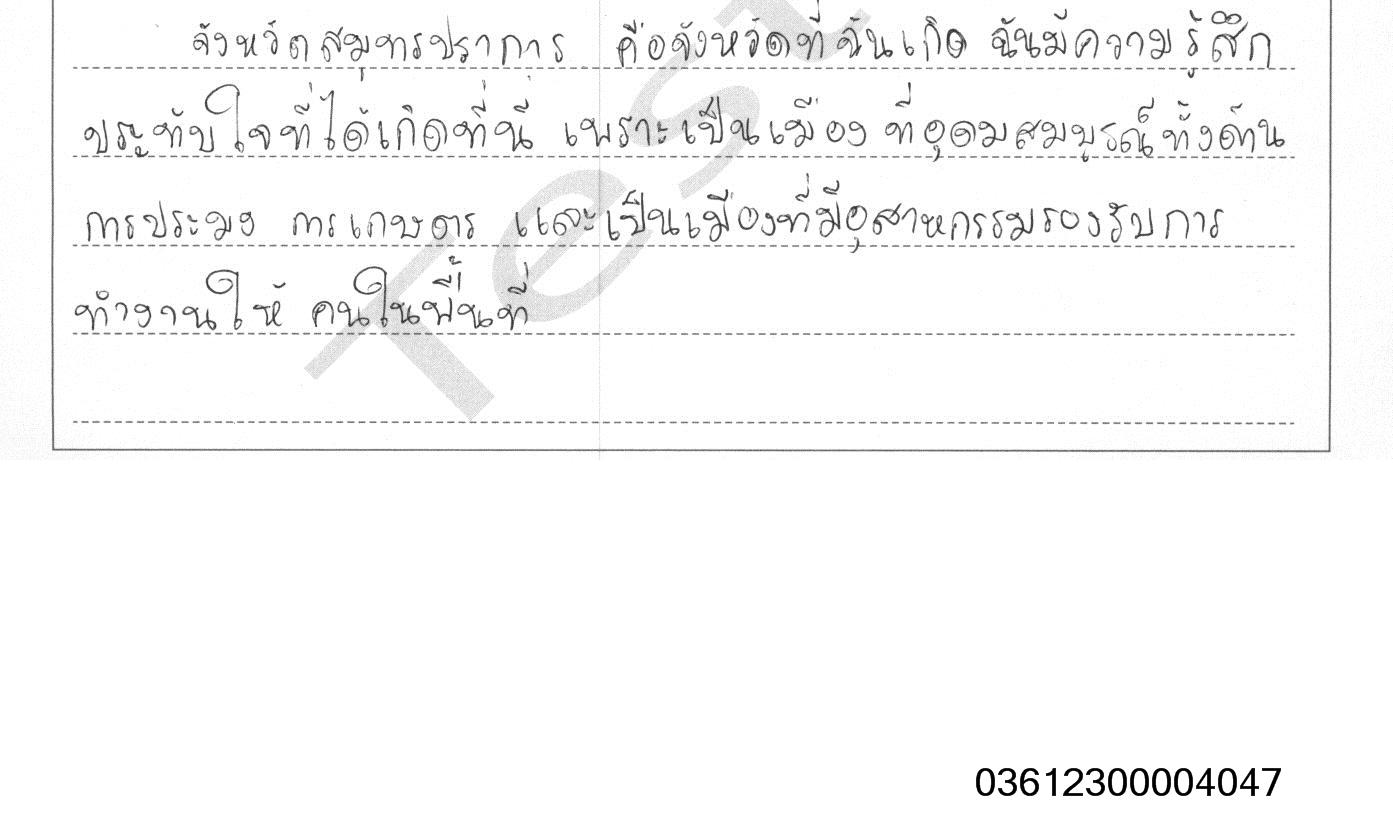 จังหวัดสมุทรปราการ คือจังหวัดที่ฉันเกิด ฉันมีความรู้สึก
ประทับใจที่ได้เกิดที่นี่ เพราะเป็นเมือง ที่อุดมสมบูรณ์ทั้งด้าน
การประมง การเกษตร และเป็นเมืองที่มีอุสาหกรรมรองรับการ
ทำงานให้ คนในพื้นที่
Test
03612300004047